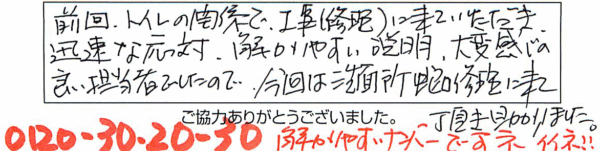 前回、トイレの関係で、工事(修理)に来ていただき、
迅速な応対、解かりやすい説明、大変感じの
良い担当者でしたので、今回は三箇所の修理に来て
ご協力ありがとうございました。 丁頂き助かりました。
0120-30-20-30 解かりやすいナンバーですネ イイネ!!